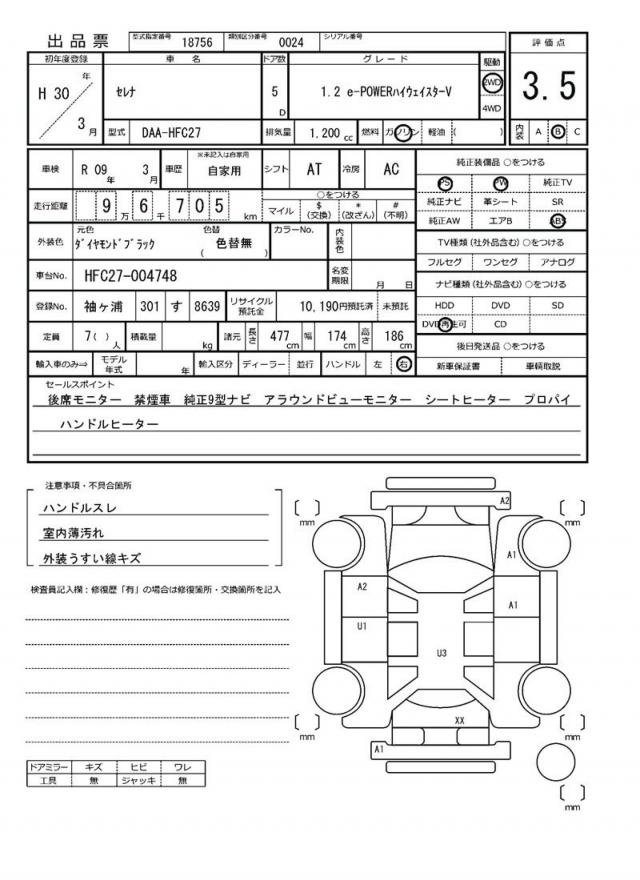 出品票 型式指定番号 18756 類別区分番号 0024 シリアル番号
初年度登録 車名 ドア数 グレード 駆動 評価点
H 30年 3月 セレナ 5D 1.2 e-POWERハイウェイスターV 2WD 4WD 3.5
型式 DAA-HFC27 排気量 1.200 cc 燃料 ガソリン 軽油 ( ) 内装 A B C
車検 R 09年 3月 車歴 ※未記入は自家用 自家用 シフト AT 冷房 AC
純正装備品 ○をつける
PS PW 純正TV
純正ナビ 革シート SR
純正AW エアB ABS
走行距離 9 6 7 0 5 万 千 km ○をつける マイル $(交換) *(改ざん) #(不明)
外装色 元色 ダイヤモンドブラック 色替 ( 色替無 ) カラーNo. 内装色
TV種類(社外品含む)○をつける
フルセグ ワンセグ アナログ
車台No. HFC27-004748 名変期限 月 日
ナビ種類(社外品含む)○をつける
HDD DVD SD
DVD再生可 CD
登録No. 袖ヶ浦 301 す 8639 リサイクル預託金 10,190円預託済 未預託
定員 7( )人 積載量 kg 諸元 長さ 477cm 幅 174cm 高さ 186cm
後日発送品 ○をつける
新車保証書 車輌取説
輸入車のみ⇒ モデル年式 年 輸入区分 ディーラー 並行 ハンドル 左 右
セールスポイント
後席モニター 禁煙車 純正9型ナビ アラウンドビューモニター シートヒーター プロパイ
ハンドルヒーター
注意事項・不具合箇所
ハンドルスレ
室内薄汚れ
外装うすい線キズ
検査員記入欄:修復歴「有」の場合は修復箇所・交換箇所を記入
ドアミラー キズ ヒビ ワレ
工具 無 ジャッキ 無
A2
mm mm
A1
A2
A1
U1
U3
XX
mm mm
A1
mm